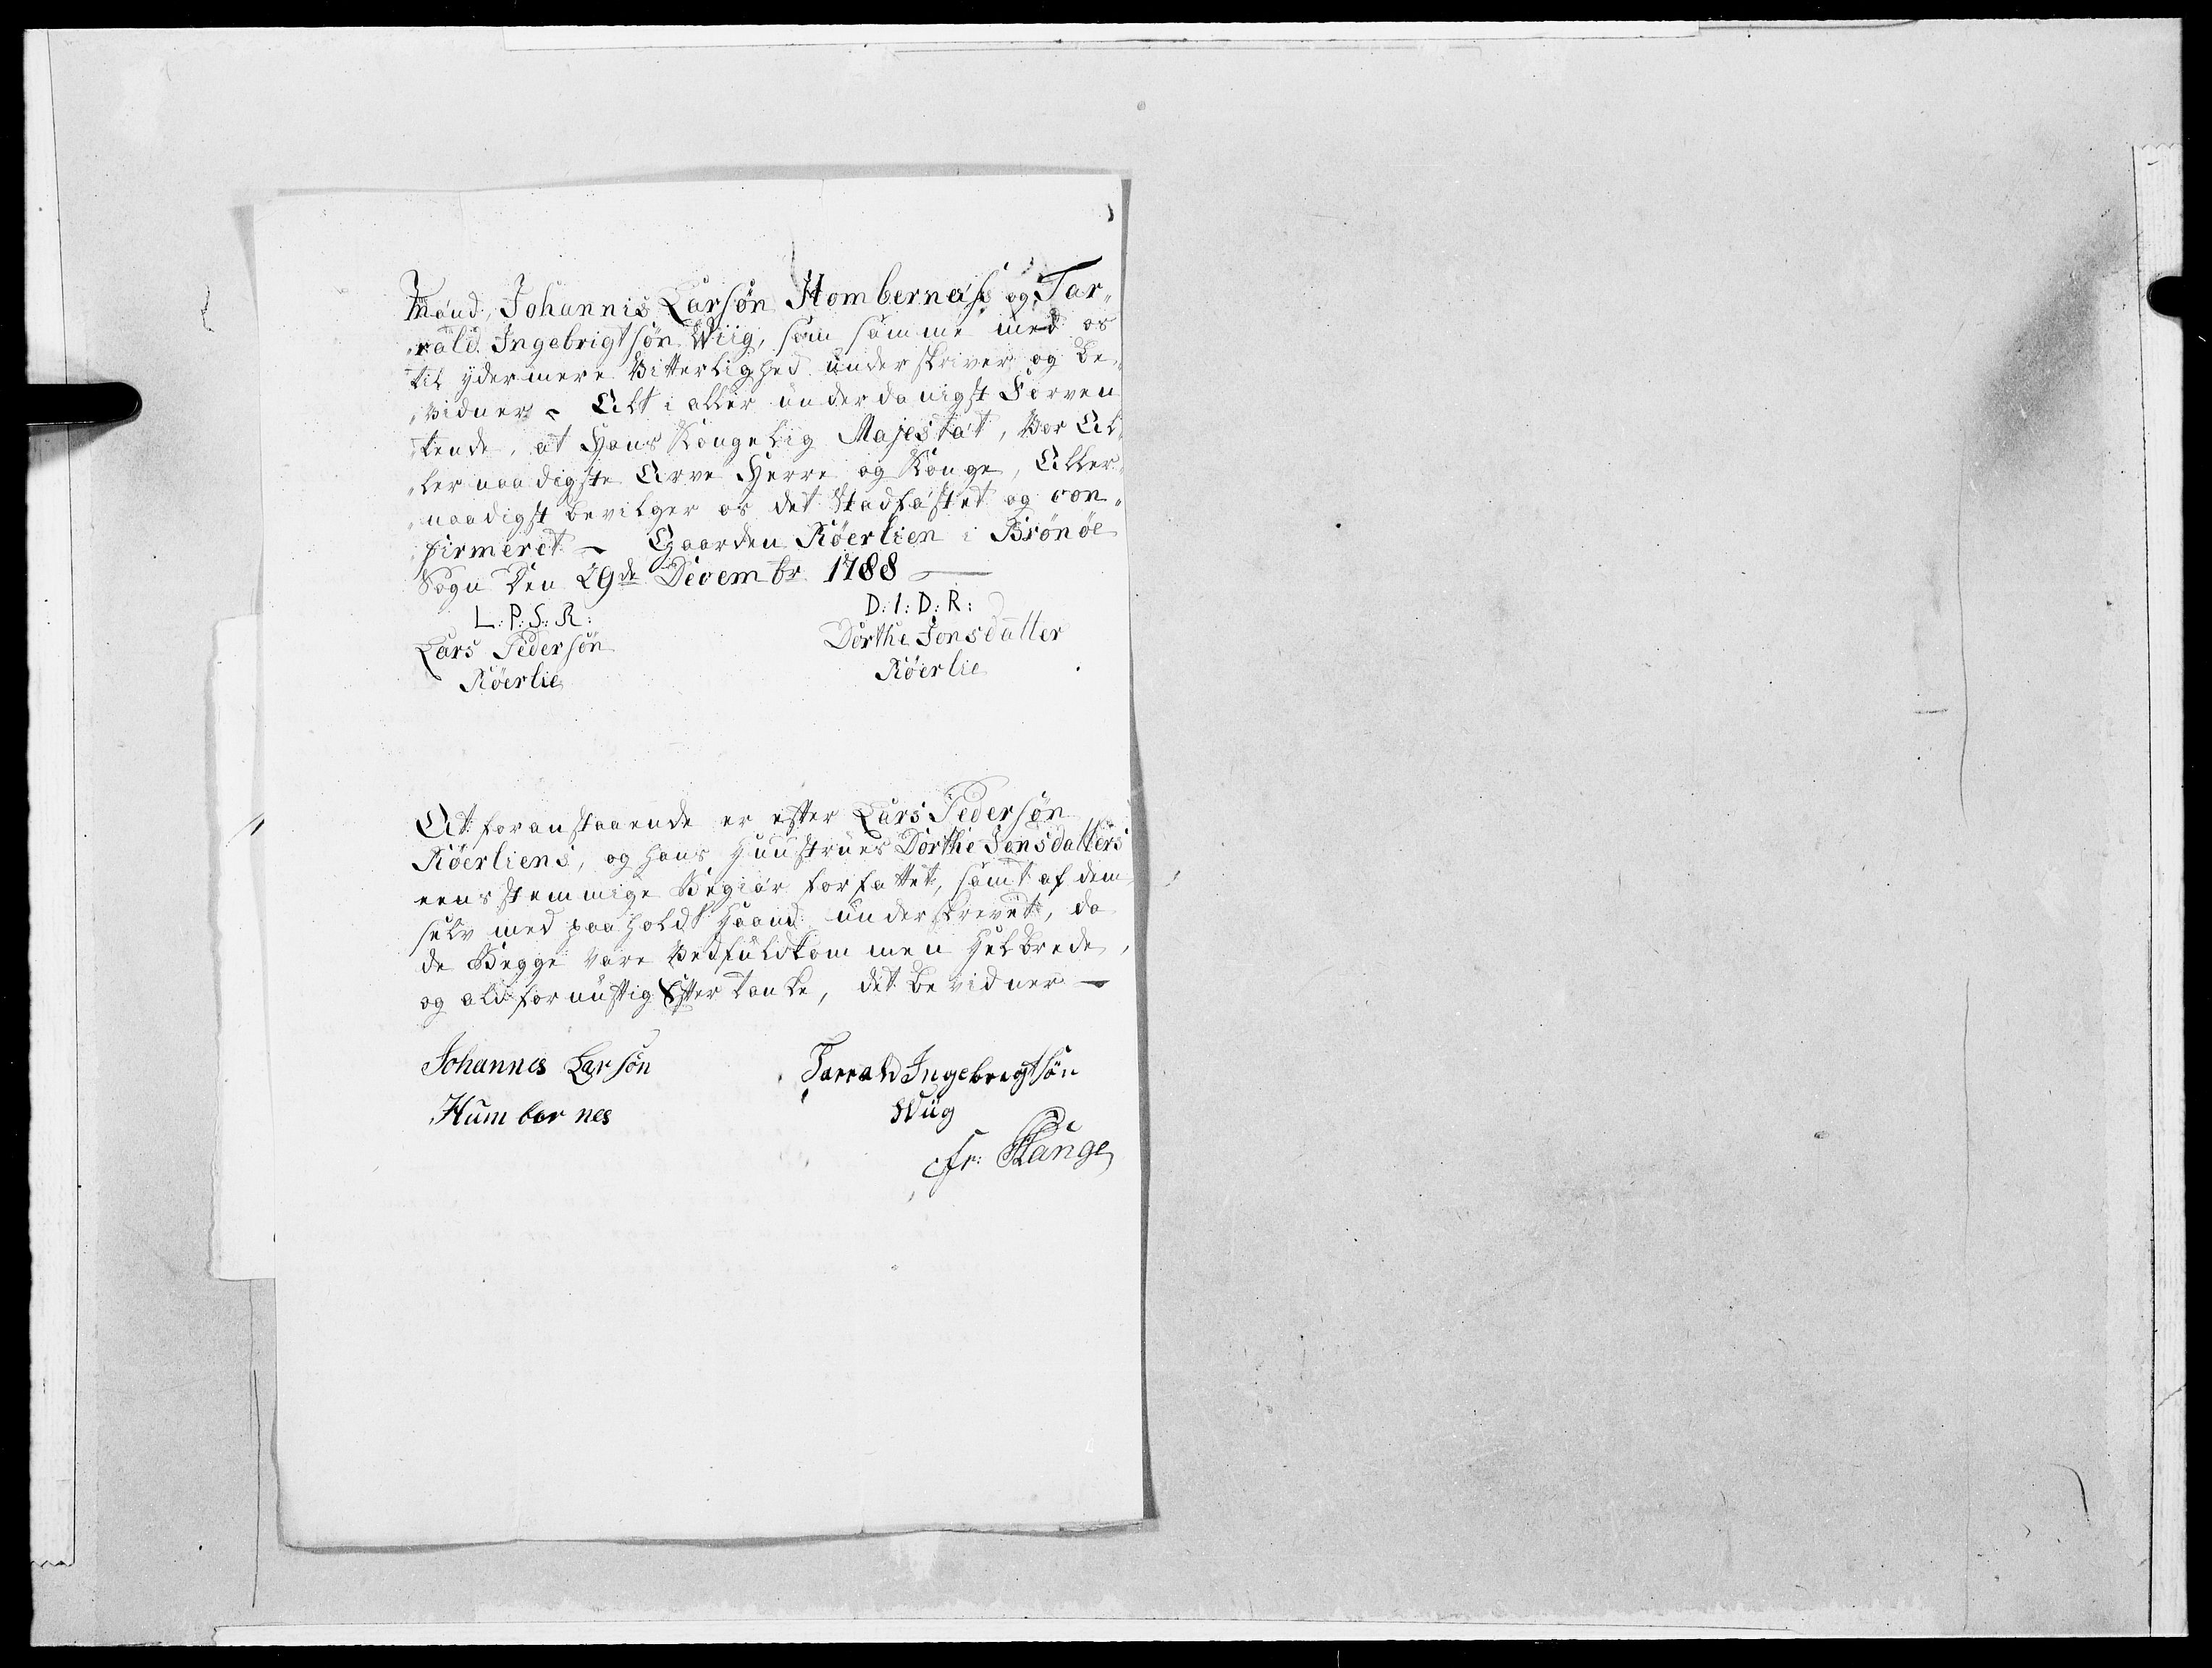 Mænd, Johannis Larsøn Hombernæss og Tar„
„rald Ingebrigtsøn Wiig, som samme med os
til ydermere Vitterlighed underskriver og be„
„vidner – Alt i aller underdanigst Forven
tende, at Hans Kongelig Majestæt, Vor Al„
„ler naadigste Arve Herre og Konge, Aller„
„naadigst bevilger os det Stadfæstet og con„
firmeret – Gaarden Röerlien i Brönöe
Sogn Den 29de Decembr 1788
L: P: S: R:
D: I: D: R:
Lars Pedersøn
Dorthe Jonsdatter
Röerlie
Röerlie
At foranstaaende er efter Lars Pedersøn
Röerliens, og hans Huustrues Dorthe Jonsdatters
eenstemmige Begiær forfattet, samt af dem
selv med paaholdt Haand underskrevet, da
de Begge vare ved fuldkommen Helbrede,
og ald fornuftig Eftertanke, det bevidner –
Johannes Larsøn
Tarrald Ingebregtsøn
Humbornes
Wiig
Fr: Plange